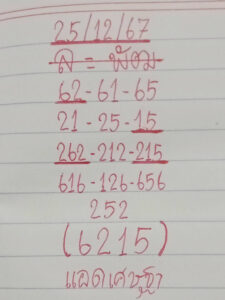 25/12/67
62-61-65
21-25-15
262-212-215
616-126-656
252
(6215)
แอดเศรษฐา